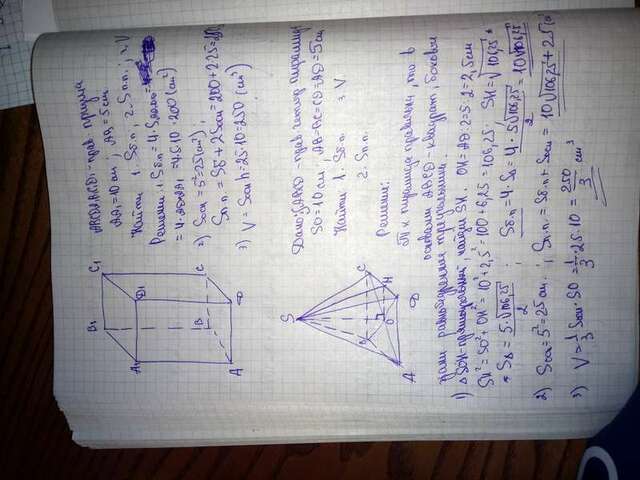 ABCDA₁B₁C₁D₁ - прав. призма
AA₁ = 10 см; AB = 5 см
Найти 1. Sб.п. 2. Sп.п.; 3. V
Решение: 1. Sб.п. = 4·
= 4·AD·AA₁ = 4·5·10 = 200 (см²)
2) Sосн = 5² = 25 (см²);
Sп.п. = Sб + 2Sосн = 200 + 2·25 =
3) V = Sосн·h = 25·10 = 250 (см³)
B₁ C₁
A₁ D₁
B C
A D
Дано: SABCD - прав. пирамида
SO = 10 см, AB = BC = CD = AD = 5 см
Найти 1. Sб.п. 3. V
2. Sп.п.
Решение:
Т.к. пирамида правильн., то в
основании ABCD - квадрат, боковые
грани равнобедренные треугольники.
1) △SOH - прямоугольный, найдём SH. OH = AD:2 = 5:2 = 2,5 см
SH² = SO² + OH² = 10² + 2,5² = 100 + 6,25 = 106,25. SH = √106,25
S△ = 5·√106,25 / 2; Sб.п = 4·S△ = 4·5√106,25 / 2 = 10√106,25
2) Sосн = 5² = 25 см.; Sп.п. = Sб.п + Sосн = 10√106,25 + 25
3) V = 1/3 Sосн·SO = 1/3·25·10 = 250/3 см³
S
C
H
O
A D